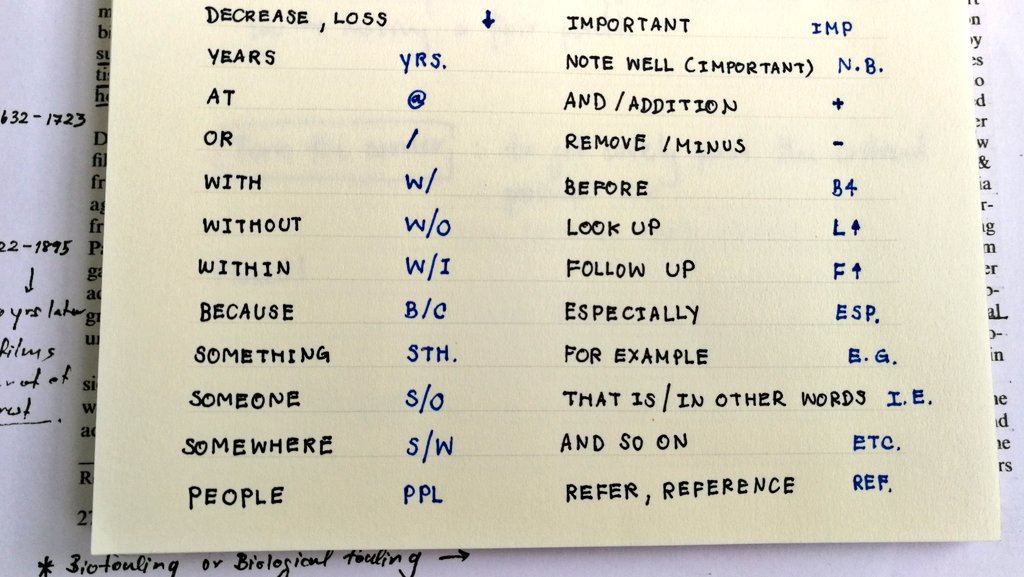 DECREASE, LOSS ↓
YEARS YRS.
AT @
OR /
WITH W/
WITHOUT W/O
WITHIN W/I
BECAUSE B/C
SOMETHING STH.
SOMEONE S/O
SOMEWHERE S/W
PEOPLE PPL
IMPORTANT IMP
NOTE WELL (IMPORTANT) N.B.
AND/ADDITION +
REMOVE/MINUS -
BEFORE B4
LOOK UP L↑
FOLLOW UP F↑
ESPECIALLY ESP.
FOR EXAMPLE E.G.
THAT IS/IN OTHER WORDS I.E.
AND SO ON ETC.
REFER, REFERENCE REF.
632-1723
22-1895
↓
yrs later
films
* Biofouling or Biological fouling →